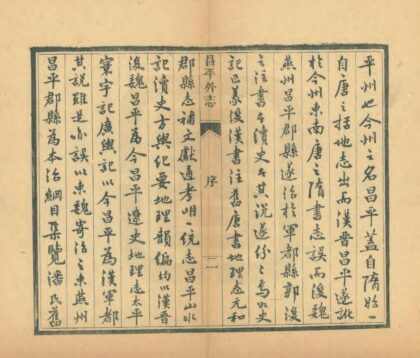 平州也今州之名昌平蓋自隋始一
自唐之括地志出而漢晉昌平遂訛
於今州東南唐之隋書志誤而後魏
燕州昌平郡縣遂治於軍都縣郭後
之注書者讀史者其說遂紛之焉如史
記正義後漢書注舊唐書地理志元和
昌平外志
序
一
郡縣志補文獻通考明一統志昌平山水
記讀史方輿紀要地理韻編均以漢晉
後魏昌平為今昌平遼史地理志太平
寰宇記廣輿記以今昌平為漢軍都
其說雖是亦誤以東魏寄治之東燕州
昌平郡縣為本治綱目集覽潘氏舊